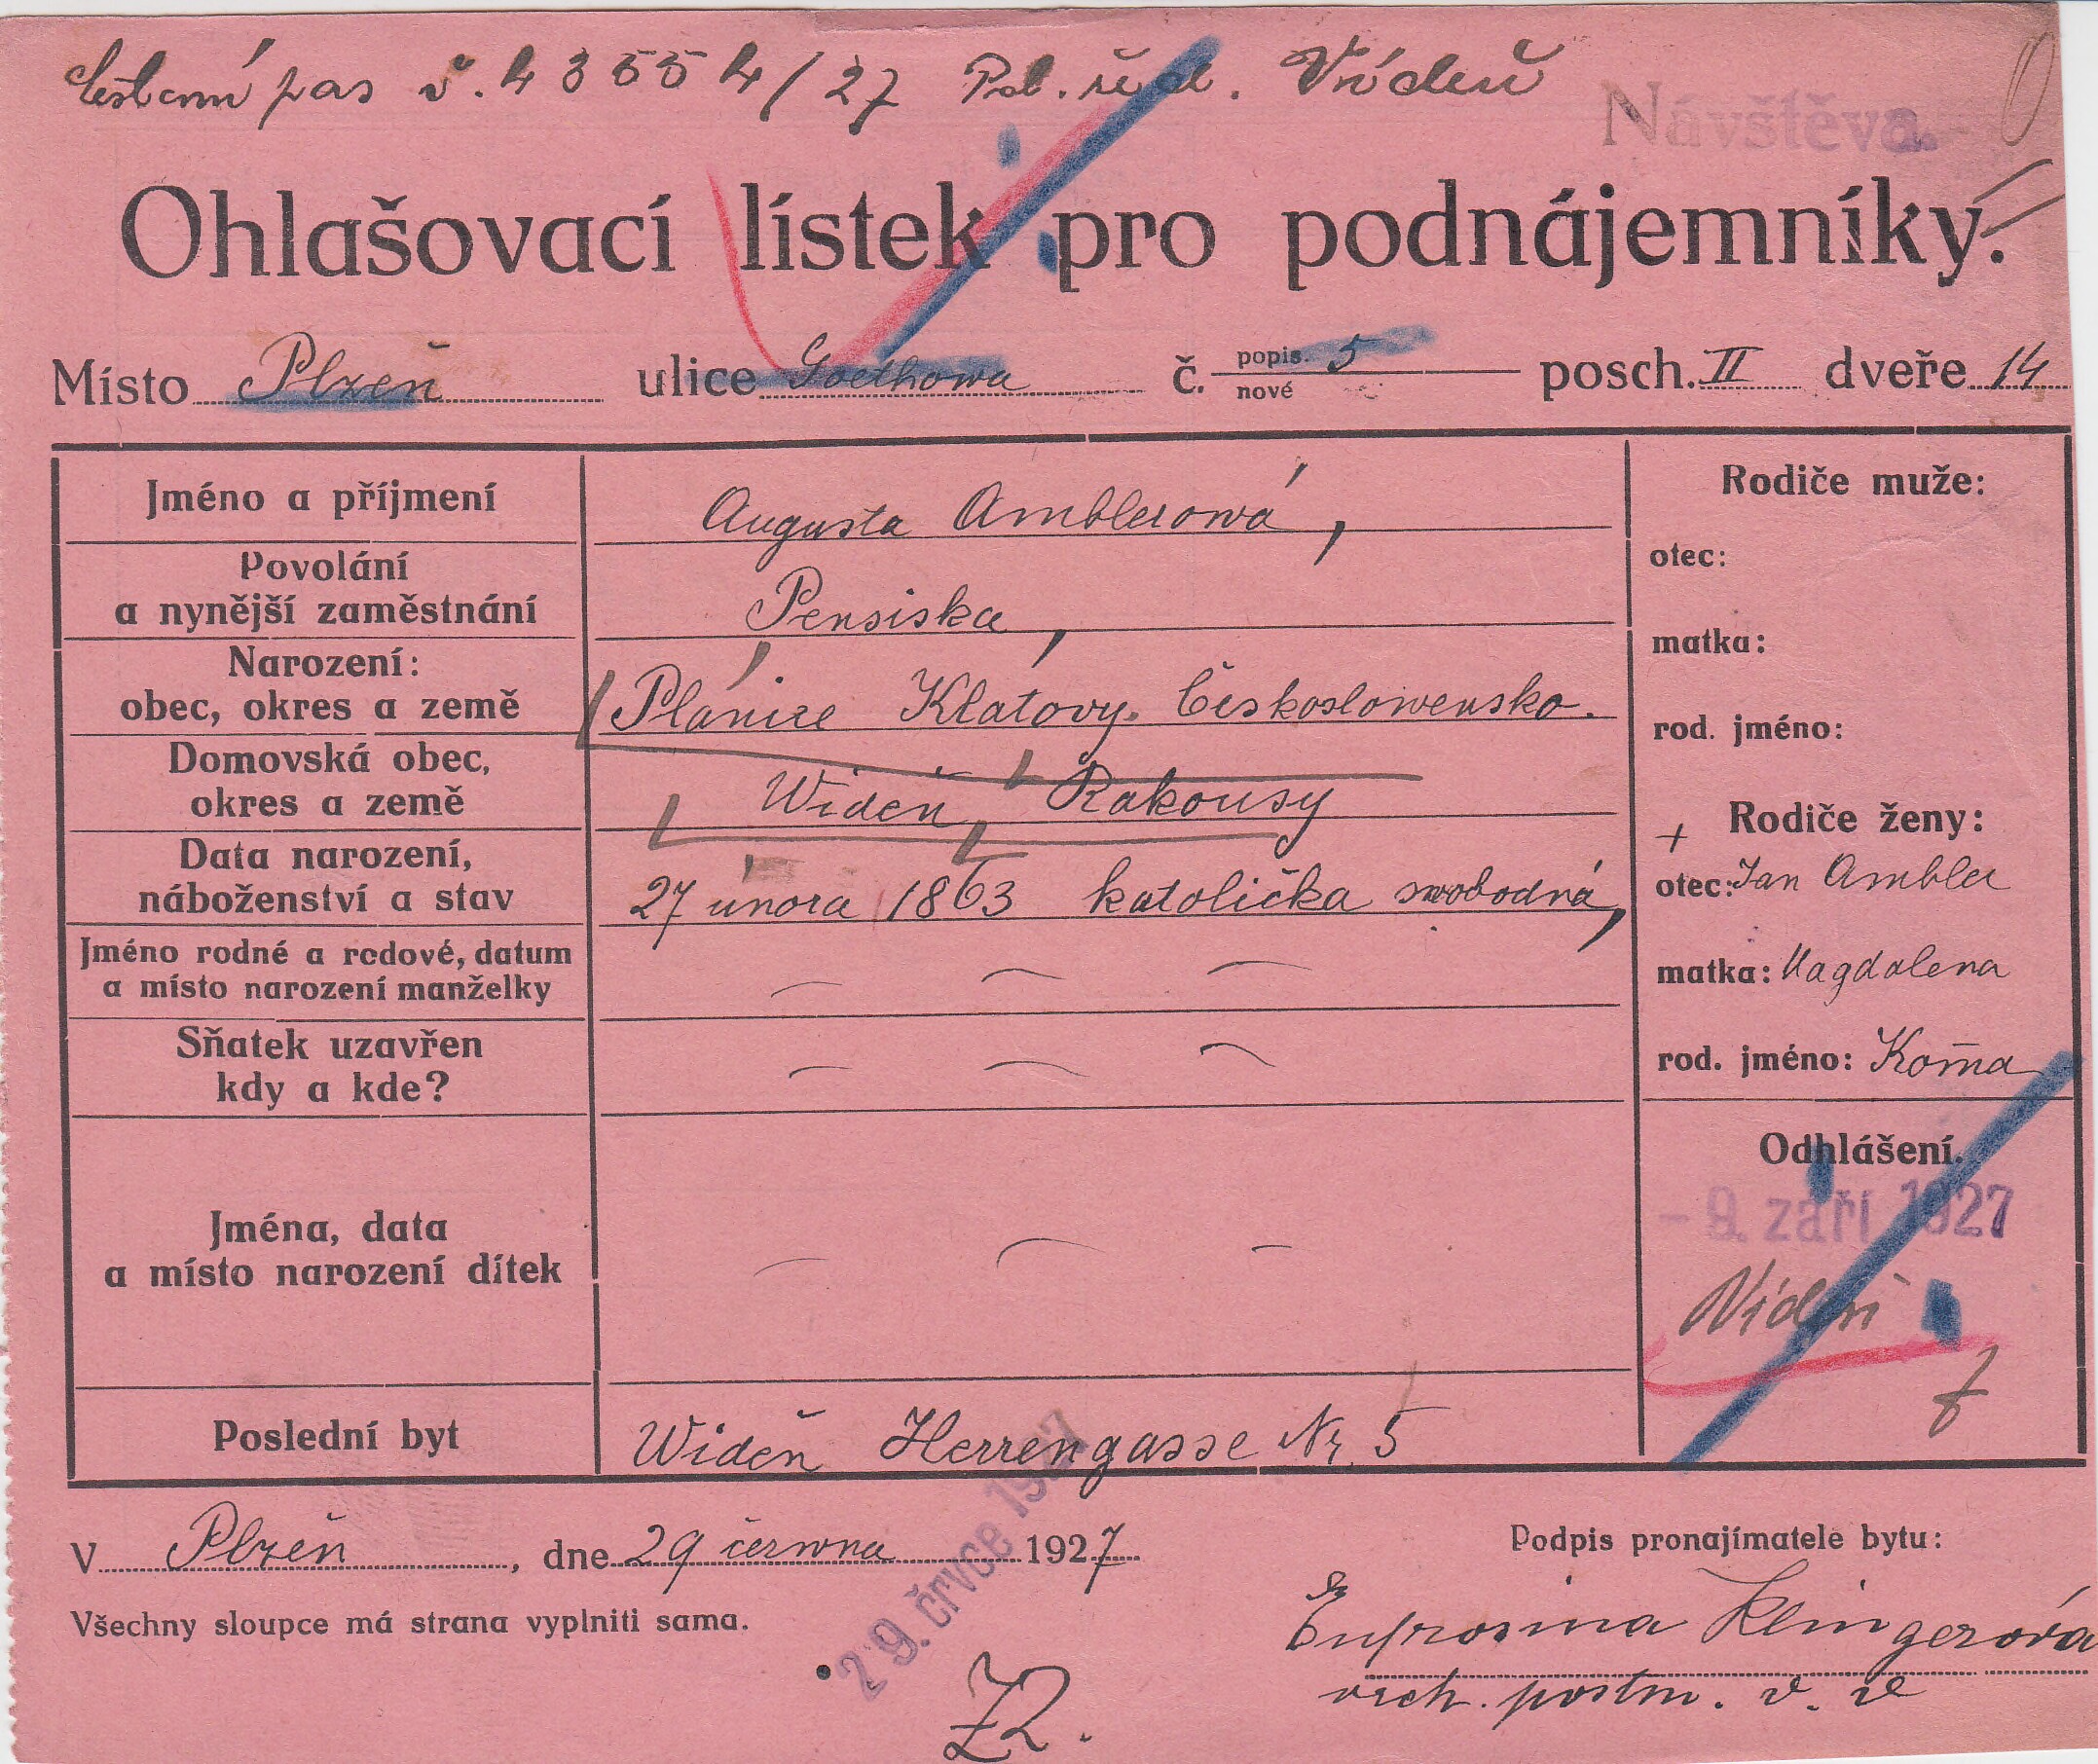 Cestovní pas č. 43554/27 Pol. řed. Vídeň
Návštěva.
Ohlašovací lístek pro podnájemníky.
Místo Plzeň ulice Goethowa č. popis. 5 nové posch. II dveře 14
Jméno a příjmení Augusta Amblerowá,
Rodiče muže:
otec:
Povolání
a nynější zaměstnání Pensiska,
matka:
Narození:
obec, okres a země Plánice Klatovy. Českoslowensko.
rod. jméno:
Domovská obec,
okres a země Wideň, Rakousy
Rodiče ženy:
Data narození,
náboženství a stav 27 února 1863 katolička swobodná,
otec: Jan Ambler
Jméno rodné a rodové, datum
a místo narození manželky
matka: Magdalena
Sňatek uzavřen
kdy a kde?
rod. jméno: Kom̄a
Odhlášení.
- 9. září 1927
Vídeň
Jména, data
a místo narození dítek
Poslední byt Wideň Herrengasse Nr. 5
V Plzeň, dne 29 červwna 1927
29. črvce 1927
Podpis pronajímatele bytu:
Všechny sloupce má strana vyplniti sama.
Eufrosina Klingerová
vrch. postm. v. v.